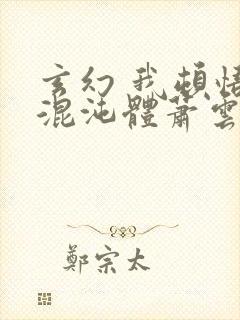 玄幻 我頓悟
混沌體蕭雲
鄭宗太